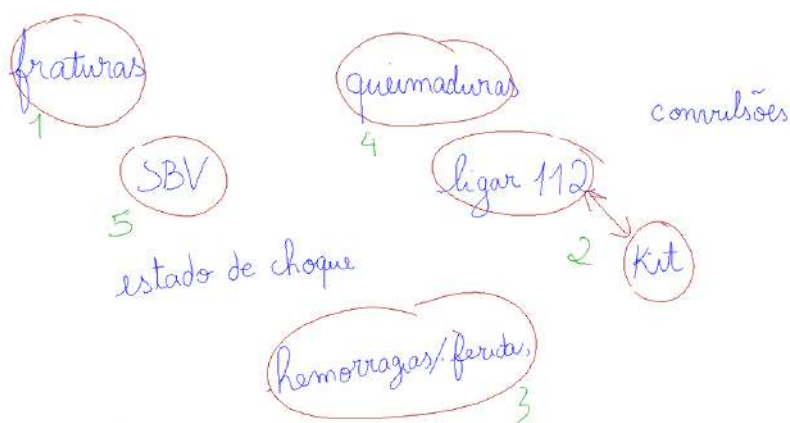 fraturas
1
queimaduras
4
convulsões
SBV
5
ligar 112
2
Kit
estado de choque
hemorragias/feridas
3